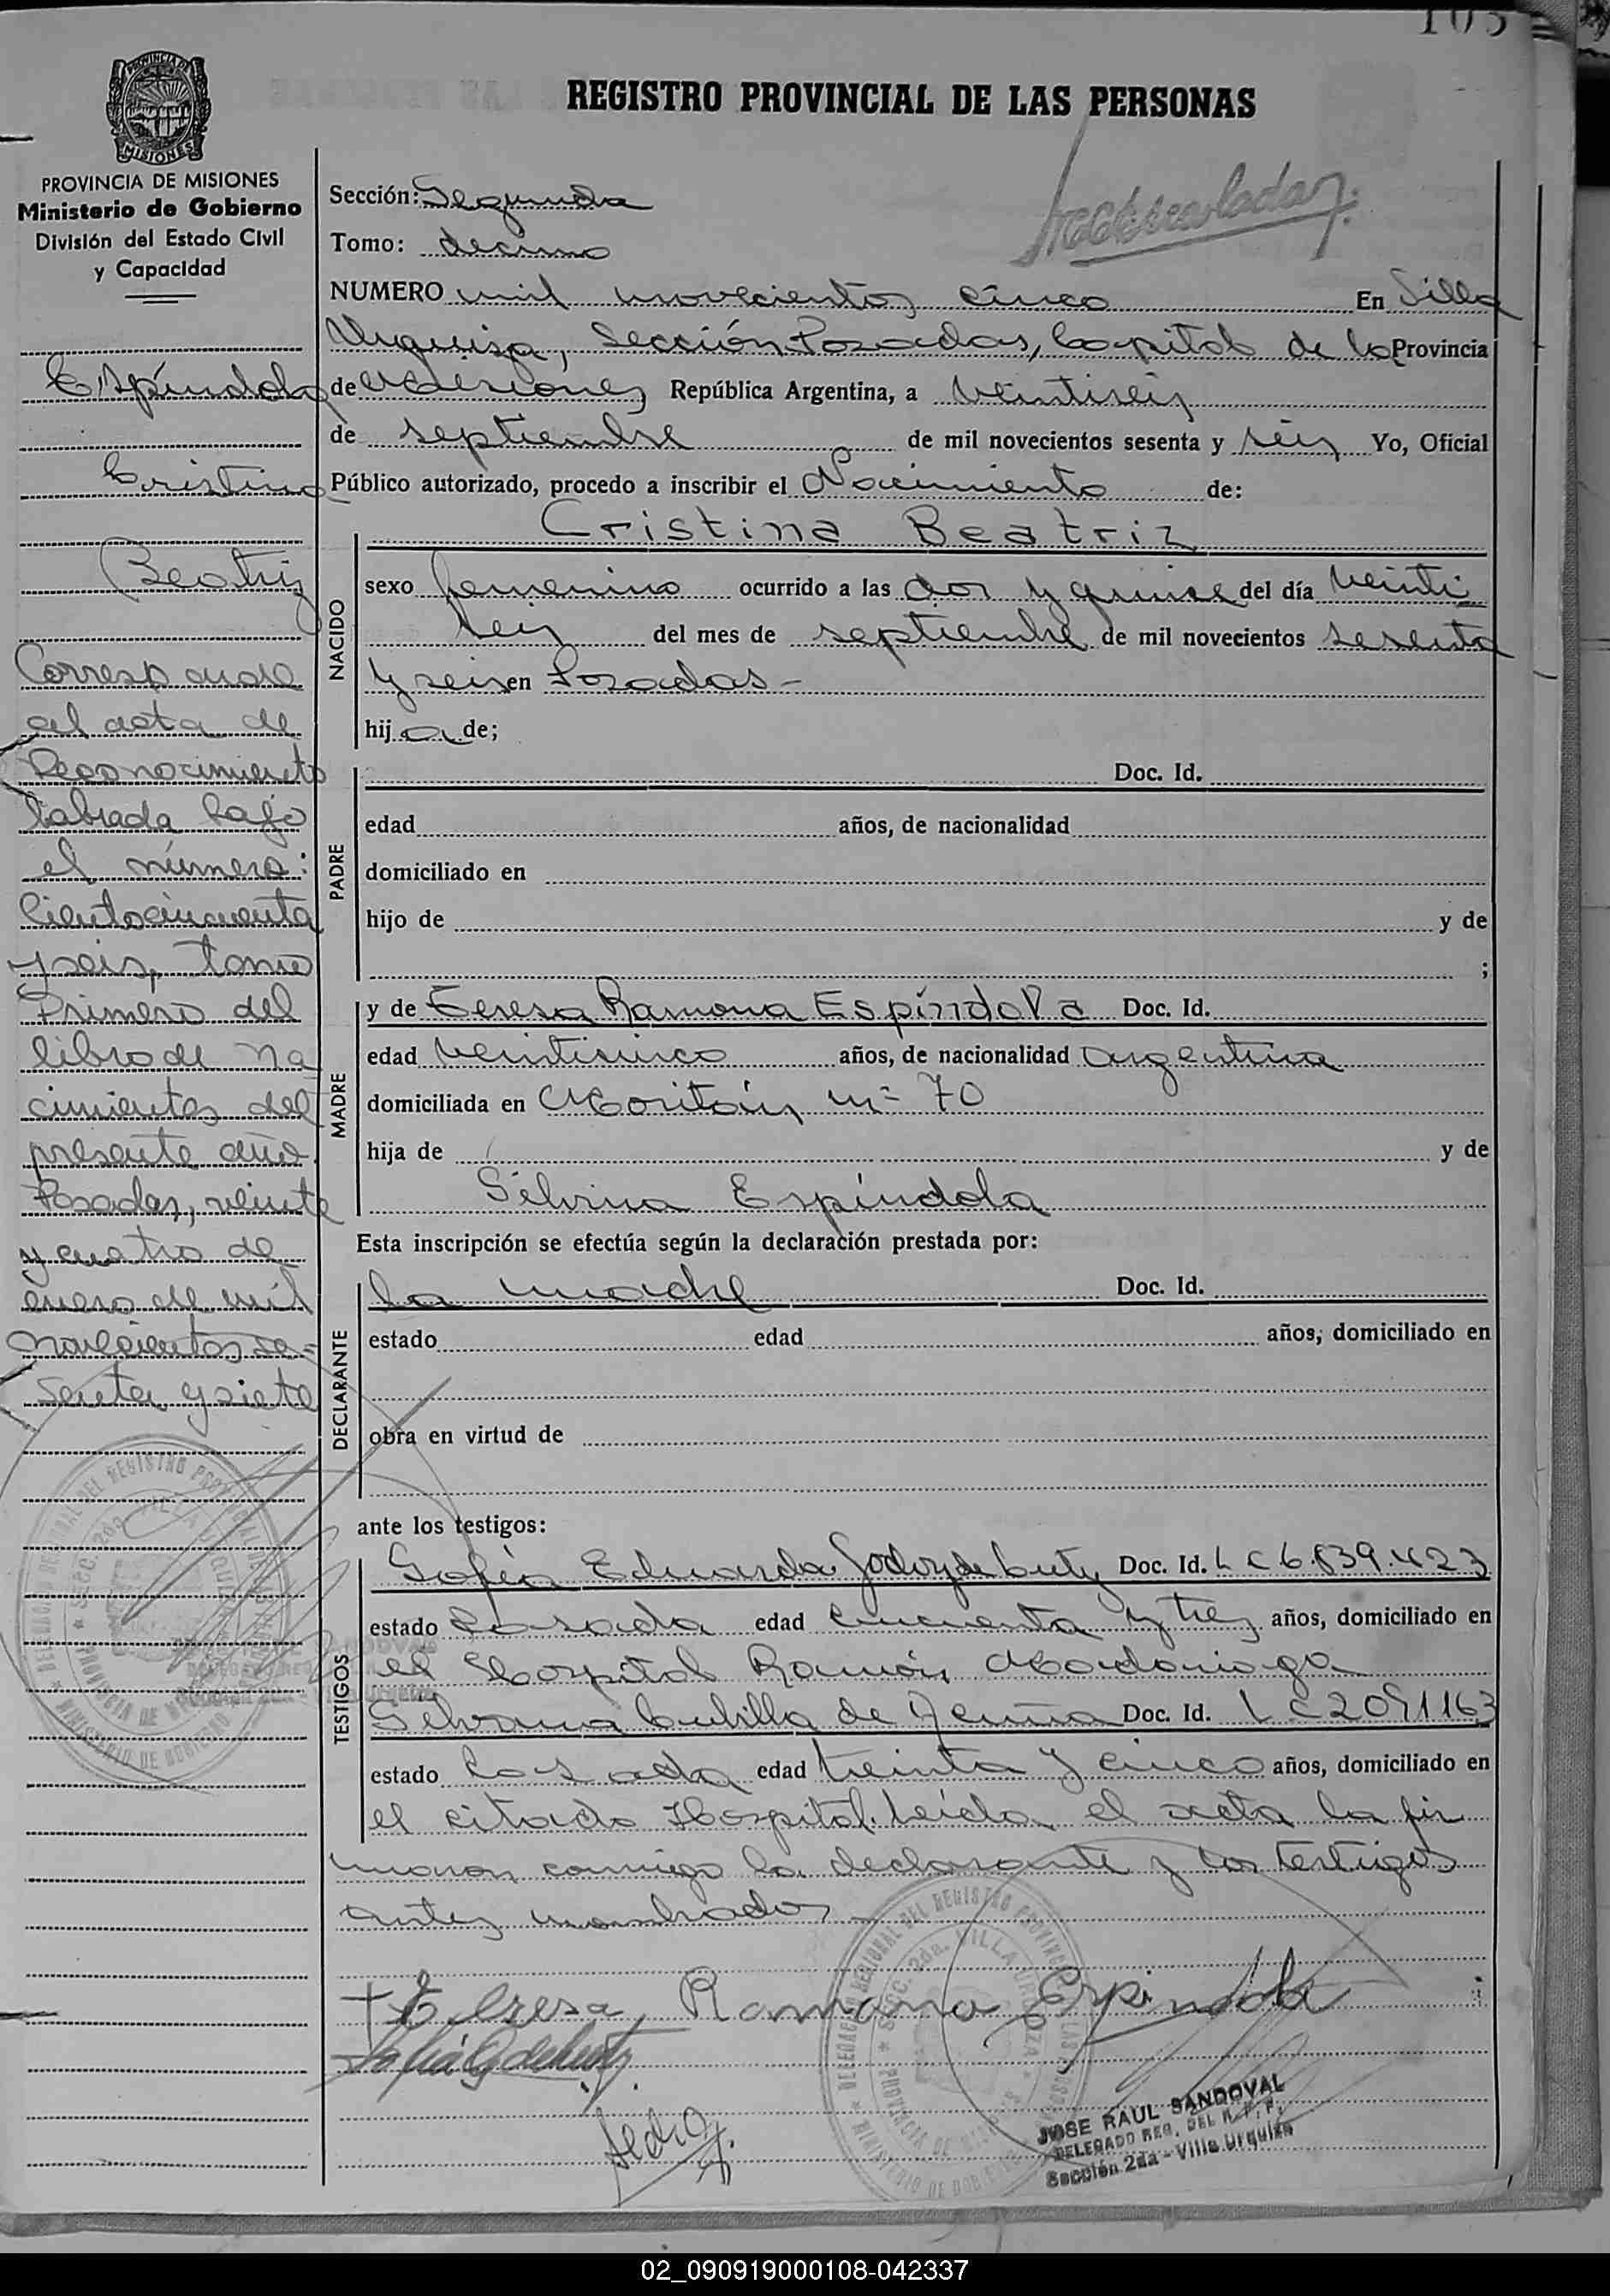 105
REGISTRO PROVINCIAL DE LAS PERSONAS
PROVINCIA DE
MISIONES
PROVINCIA DE MISIONES
Ministerio de Gobierno
División del Estado Civil
y Capacidad
Espíndola
Cristina
Beatriz
Corresponde
al acta de
Reconocimiento
labrada bajo
el número:
Cientocincuenta
y seis, tomo
Primero del
libro de Na
cimientos del
presente año.
Posadas, veinte
y cuatro de
enero de mil
novecientos se-
senta y siete
Sección: Segunda
Tomo: decimo
NUMERO mil novecientos cinco En Villa
Urquiza, Sección Posadas, Capital de la Provincia
de Misiones República Argentina, a veintiseis
de septiembre de mil novecientos sesenta y seis Yo, Oficial
Público autorizado, procedo a inscribir el Nacimiento de:
Cristina Beatriz
NACIDO
sexo femenino ocurrido a las dos y quince del día veinti
seis del mes de septiembre de mil novecientos sesenta
y seis en Posadas-
hija de;
PADRE
Doc. Id.
edad años, de nacionalidad
domiciliado en
hijo de y de
;
MADRE
y de Teresa Ramona Espíndola Doc. Id.
edad veintisinco años, de nacionalidad argentina
domiciliada en nº 70
hija de y de
Silvina Espíndola
Esta inscripción se efectúa según la declaración prestada por:
DECLARANTE
la madre Doc. Id.
estado edad años, domiciliado en
obra en virtud de
ante los testigos:
TESTIGOS
Sofía Eduarda Godoy de Doc. Id. LC 6.839.423
estado Casada edad cincuenta y tres años, domiciliado en
el Hospital Ramón Madariaga
de Doc. Id. LC 2091163
estado Casada edad treinta y cinco años, domiciliado en
el citado Hospital. Leída el acta la fir
maron conmigo la declarante y los testigos
antes nombrados
+ Teresa Ramona Espindola
JOSE RAUL SANDOVAL
DELEGADO REG. DEL R. P. P.
Sección 2da - Villa Urquiza
02_090919000108-042337